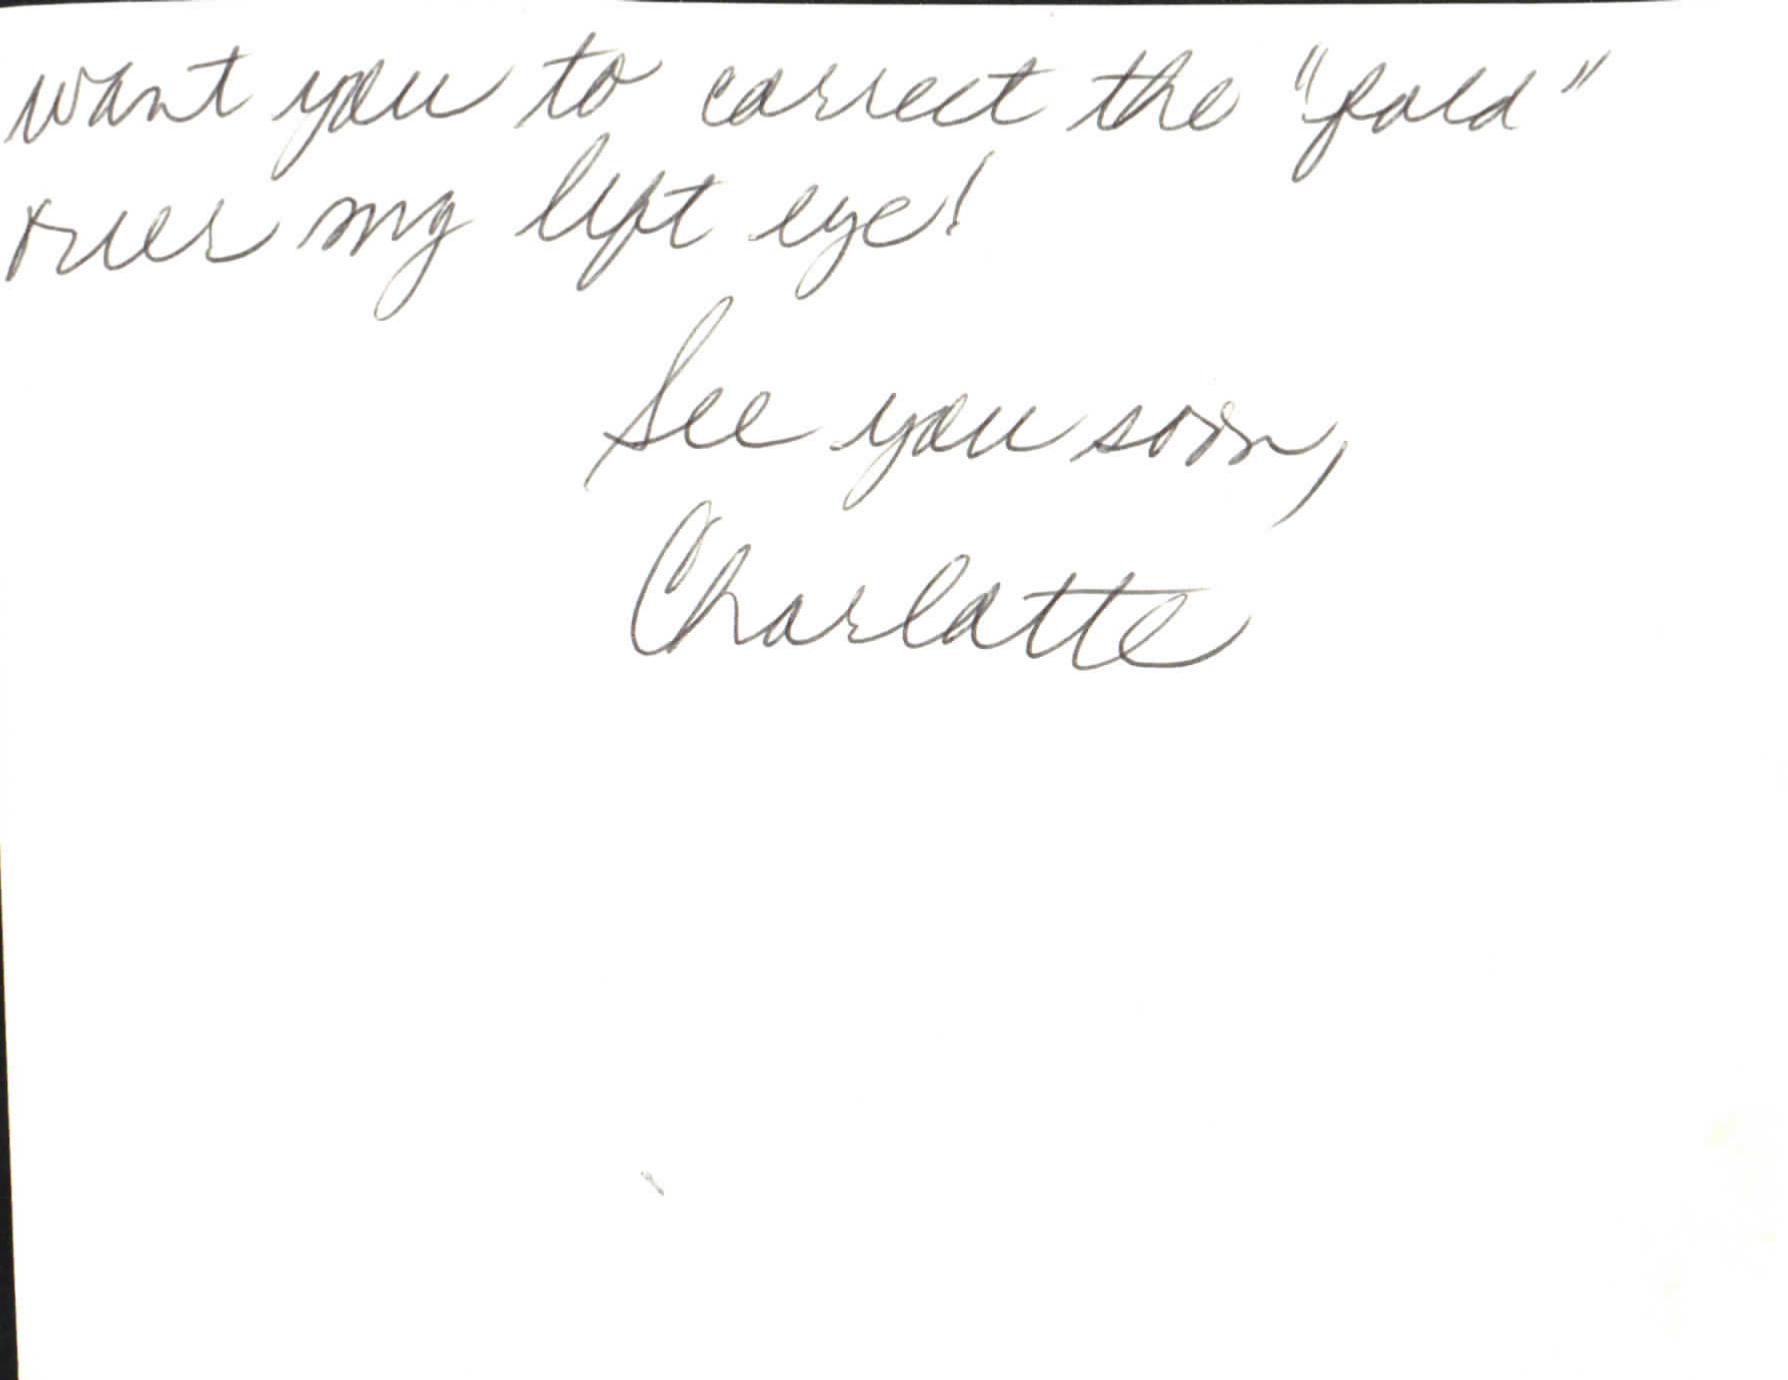 want you to correct the "fold"
over my left eye!
See you soon,
Charlotte